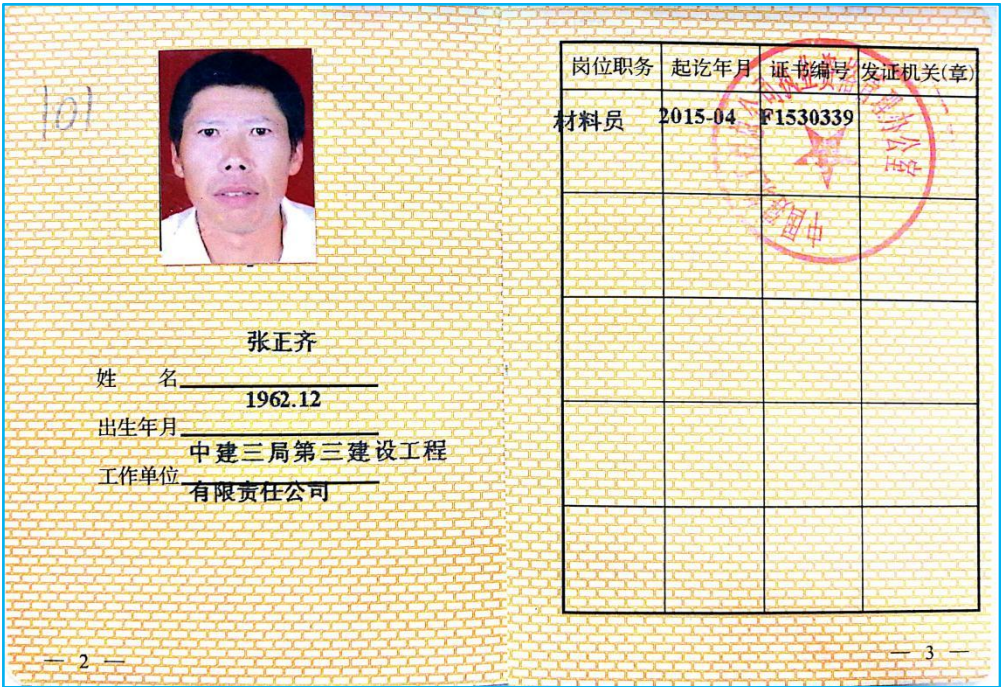 101
张正齐
姓 名
1962.12
出生年月
中建三局第三建设工程
工作单位
有限责任公司
— 2 —
岗位职务 起讫年月 证书编号 发证机关(章)
材料员 2015-04 F1530339
— 3 —